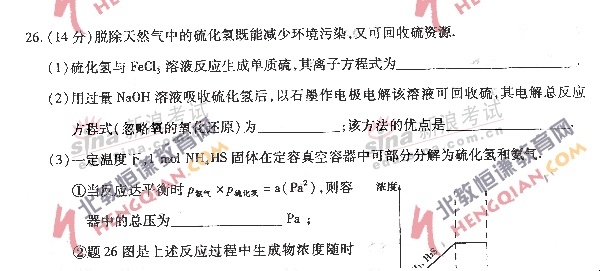 26.(14分)脱除天然气中的硫化氢既能减少环境污染,又可回收硫资源.
(1)硫化氢与FeCl₃溶液反应生成单质硫,其离子方程式为
(2)用过量NaOH溶液吸收硫化氢后,以石墨作电极电解该溶液可回收硫,其电解总反应
方程式(忽略氧的氧化还原)为 ;该方法的优点是
(3)一定温度下,1 mol NH₄HS固体在定容真空容器中可部分分解为硫化氢和氨气.
①当反应达平衡时p氨气×p硫化氢=a(Pa²),则容
器中的总压为 Pa;
浓度
②题26图是上述反应过程中生成物浓度随时
H₂S
sina新浪考试
北教恒课教育网
HENGQIAN.COM